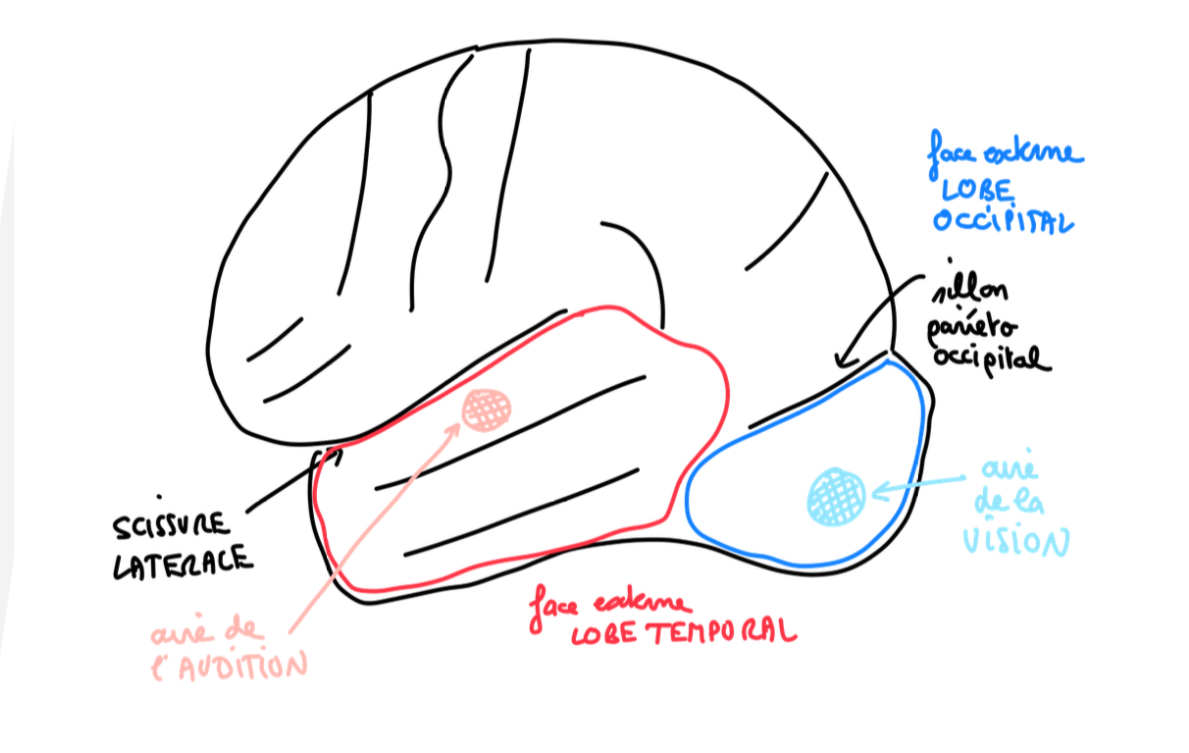 face externe
LOBE
OCCIPITAL
sillon
pariéto
occipital
aire
de la
VISION
SCISSURE
LATERALE
aire de
l'AUDITION
face externe
LOBE TEMPORAL